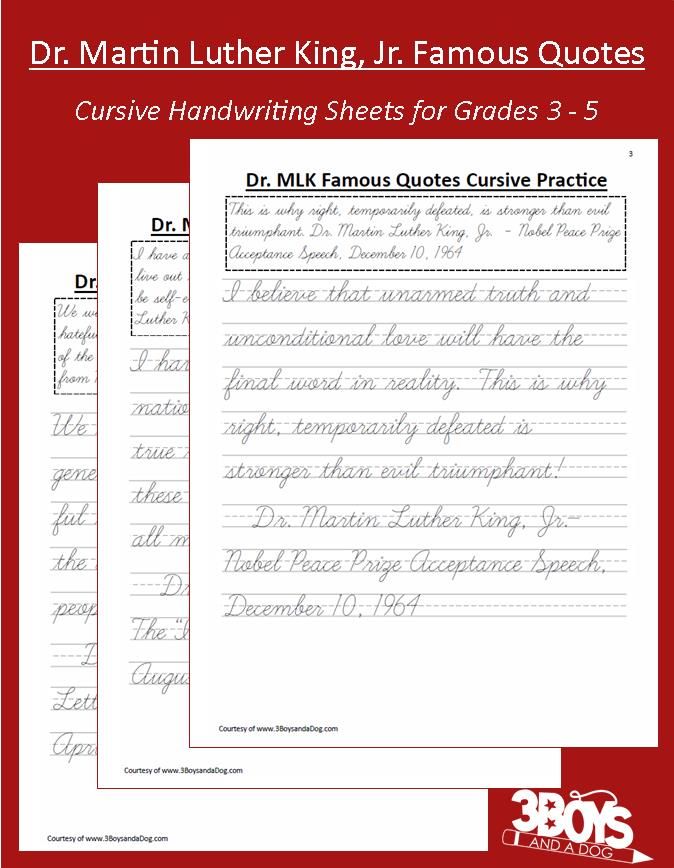 Dr. Martin Luther King, Jr. Famous Quotes
Cursive Handwriting Sheets for Grades 3 - 5
3
Dr. MLK Famous Quotes Cursive Practice
This is why right, temporarily defeated, is stronger than evil
triumphant. Dr. Martin Luther King, Jr. - Nobel Peace Prize
Acceptance Speech, December 10, 1964
I believe that unarmed truth and
unconditional love will have the
final word in reality. This is why
right, temporarily defeated is
stronger than evil triumphant!
Dr. Martin Luther King, Jr.-
Nobel Peace Prize Acceptance Speech,
December 10, 1964
Courtesy of www.3BoysandaDog.com
Dr.
I have a
live out
be self-e
Luther K
I hav
natio
true
these
all m
Dr
The "I
Augus
Courtesy of www.3BoysandaDog.com
Dr.
We we
hatefu
of the
from
We
gene
ful
the
peop
D
Lett
Apri
Courtesy of www.3BoysandaDog.com
3BOYS
AND A DOG